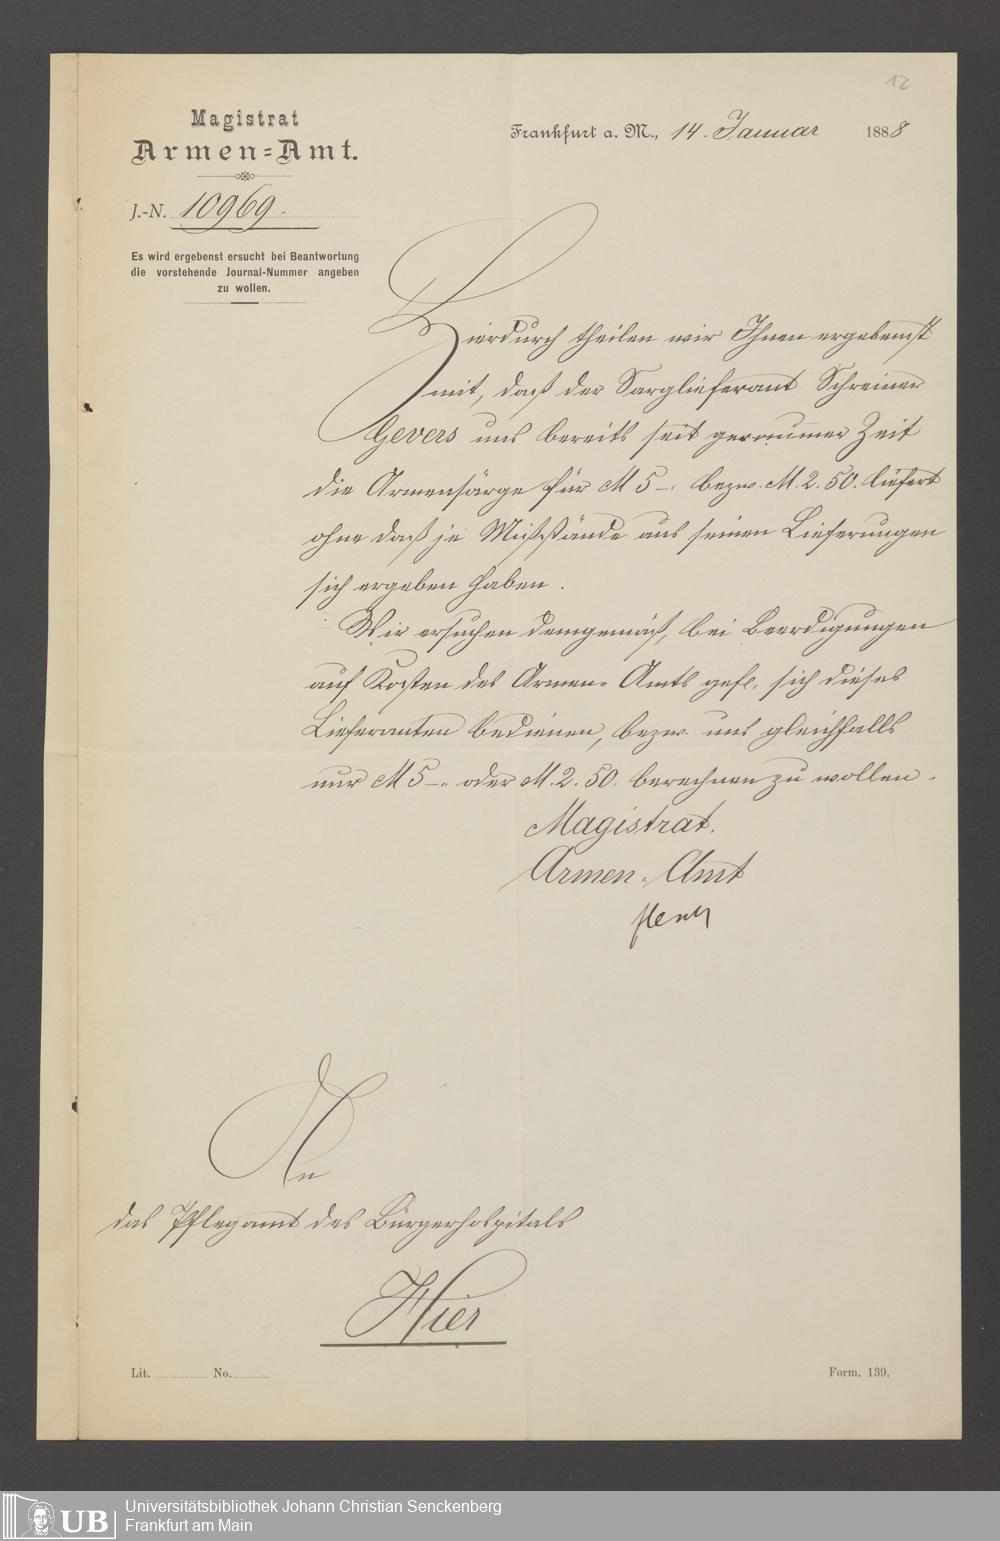 12
Magistrat
Armen=Amt.
Frankfurt a. M., 14. Januar 1888
J.-N. 10969.
Es wird ergebenst ersucht bei Beantwortung
die vorstehende Journal-Nummer angeben
zu wollen.
Hierdurch theilen wir Ihnen ergebenst
mit, daß der Sarglieferant Schreiner
Gevers uns bereits seit geraumer Zeit
die Armensärge für M 5 –. bezw. M. 2. 50. liefert
ohne daß je Mißstände aus seinen Lieferungen
sich ergeben haben.
Wir ersuchen demgemäß, bei Beerdigungen
auf Kosten des Armen-Amts gefl. sich dieses
Lieferanten bedienen, bezw. uns gleichfalls
nur M 5 –. oder M. 2. 50. berechnen zu wollen.
Magistrat.
Armen-Amt
An
das Pflegamt des Bürgerhospitals
Hier
Lit. No.
Form. 139.
UB
Universitätsbibliothek Johann Christian Senckenberg
Frankfurt am Main